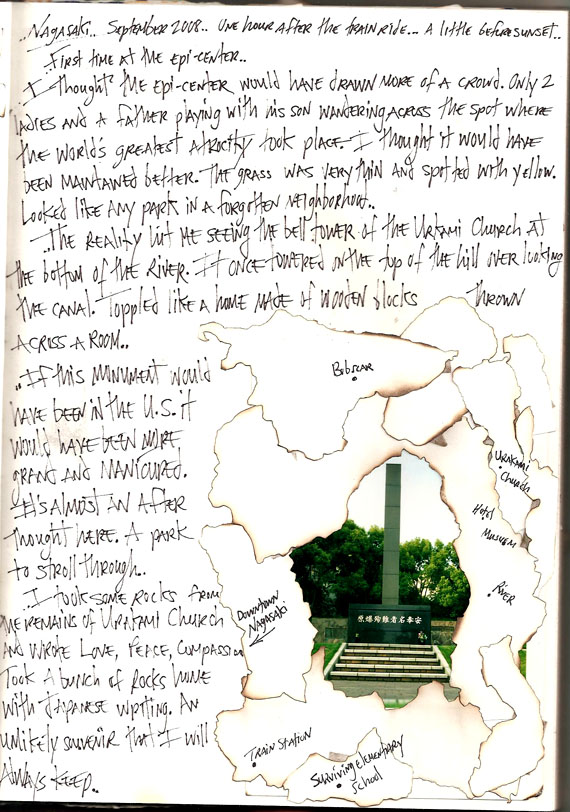 ..Nagasaki.. September 2008.. One hour after the train ride... A little before sunset..
..First time at the epi-center..
..I thought the epi-center would have drawn more of a crowd. Only 2
ladies and a father playing with his son wandering across the spot where
the world's greatest atrocity took place. I thought it would have
been maintained better. The grass was very thin and spotted with yellow.
Looked like any park in a forgotten neighborhood..
..The reality hit me seeing the bell tower of the Urakami Church at
the bottom of the river. It once towered on the top of the hill over looking
the canal. Toppled like a home made of wooden blocks thrown
across a room..
..If this monument would
have been in the U.S. it
would have been more
grand and manicured.
It's almost an after
thought here. A park
to stroll through..
..I took some rocks from
the remains of Urakami Church
and wrote Love, Peace, Compassion
Took a bunch of rocks home
with Japanese writing. An
unlikely suvenir that I will
always keep..
Bobscar
Urakami
Church
Hotel
Museum
River
Downtown
Nagasaki
原爆殉難者名奉安
Train Station
Surviving elementary
School